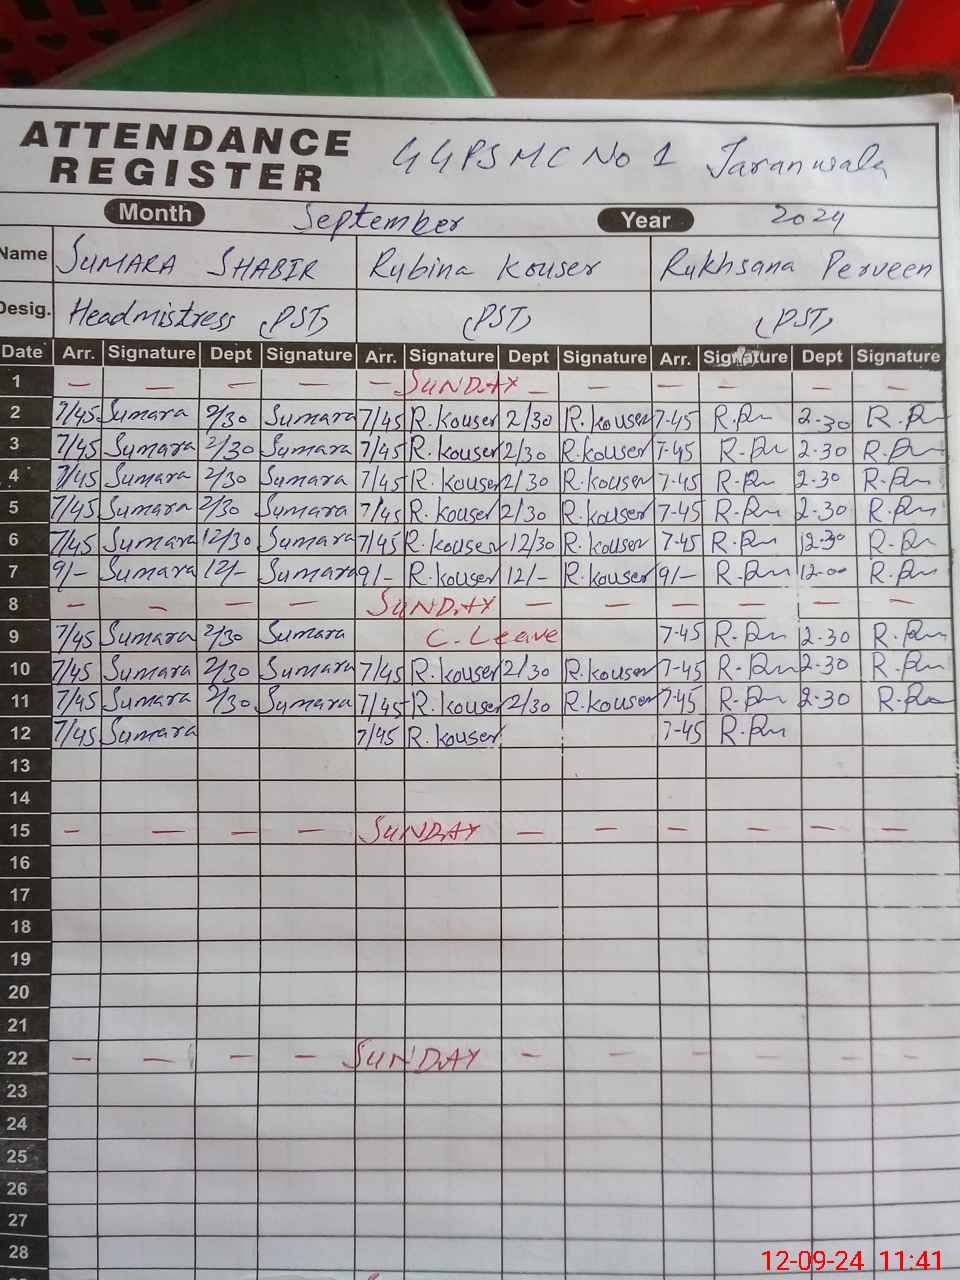 ATTENDANCE REGISTER GGPS MC No 1 Jaranwala
Month September Year 2024
Name SUMARA SHABIR Rubina Kouser Rukhsana Perveen
Desig. Headmistress (PST) (PST) (PST)
Date Arr. Signature Dept Signature Arr. Signature Dept Signature Arr. Signature Dept Signature
1 — — — — — SUNDAY — — — — — —
2 7/45 Sumara 2/30 Sumara 7/45 R.kouser 2/30 R.kouser 7-45 2-30
3 7/45 Sumara 2/30 Sumara 7/45 R.kouser 2/30 R.kouser 7-45 2-30
4 7/45 Sumara 2/30 Sumara 7/45 R.kouser 2/30 R.kouser 7-45 2-30
5 7/45 Sumara 2/30 Sumara 7/45 R.kouser 2/30 R.kouser 7-45 2-30
6 7/45 Sumara 12/30 Sumara 7/45 R.kouser 12/30 R.kouser 7-45 12-30
7 9/- Sumara 12/- Sumara 9/- R.kouser 12/- R.kouser 9/- 12-00
8 — — — — SUNDAY — — — — — —
9 7/45 Sumara 2/30 Sumara C. Leave 7-45 2-30
10 7/45 Sumara 2/30 Sumara 7/45 R.kouser 2/30 R.kouser 7-45 2-30
11 7/45 Sumara 2/30 Sumara 7/45 R.kouser 2/30 R.kouser 7-45 2-30
12 7/45 Sumara 7/45 R.kouser 7-45
13
14
15 — — — — SUNDAY — — — — — —
16
17
18
19
20
21
22 — — — — SUNDAY — — — — — —
23
24
25
26
27
28
12-09-24 11:41